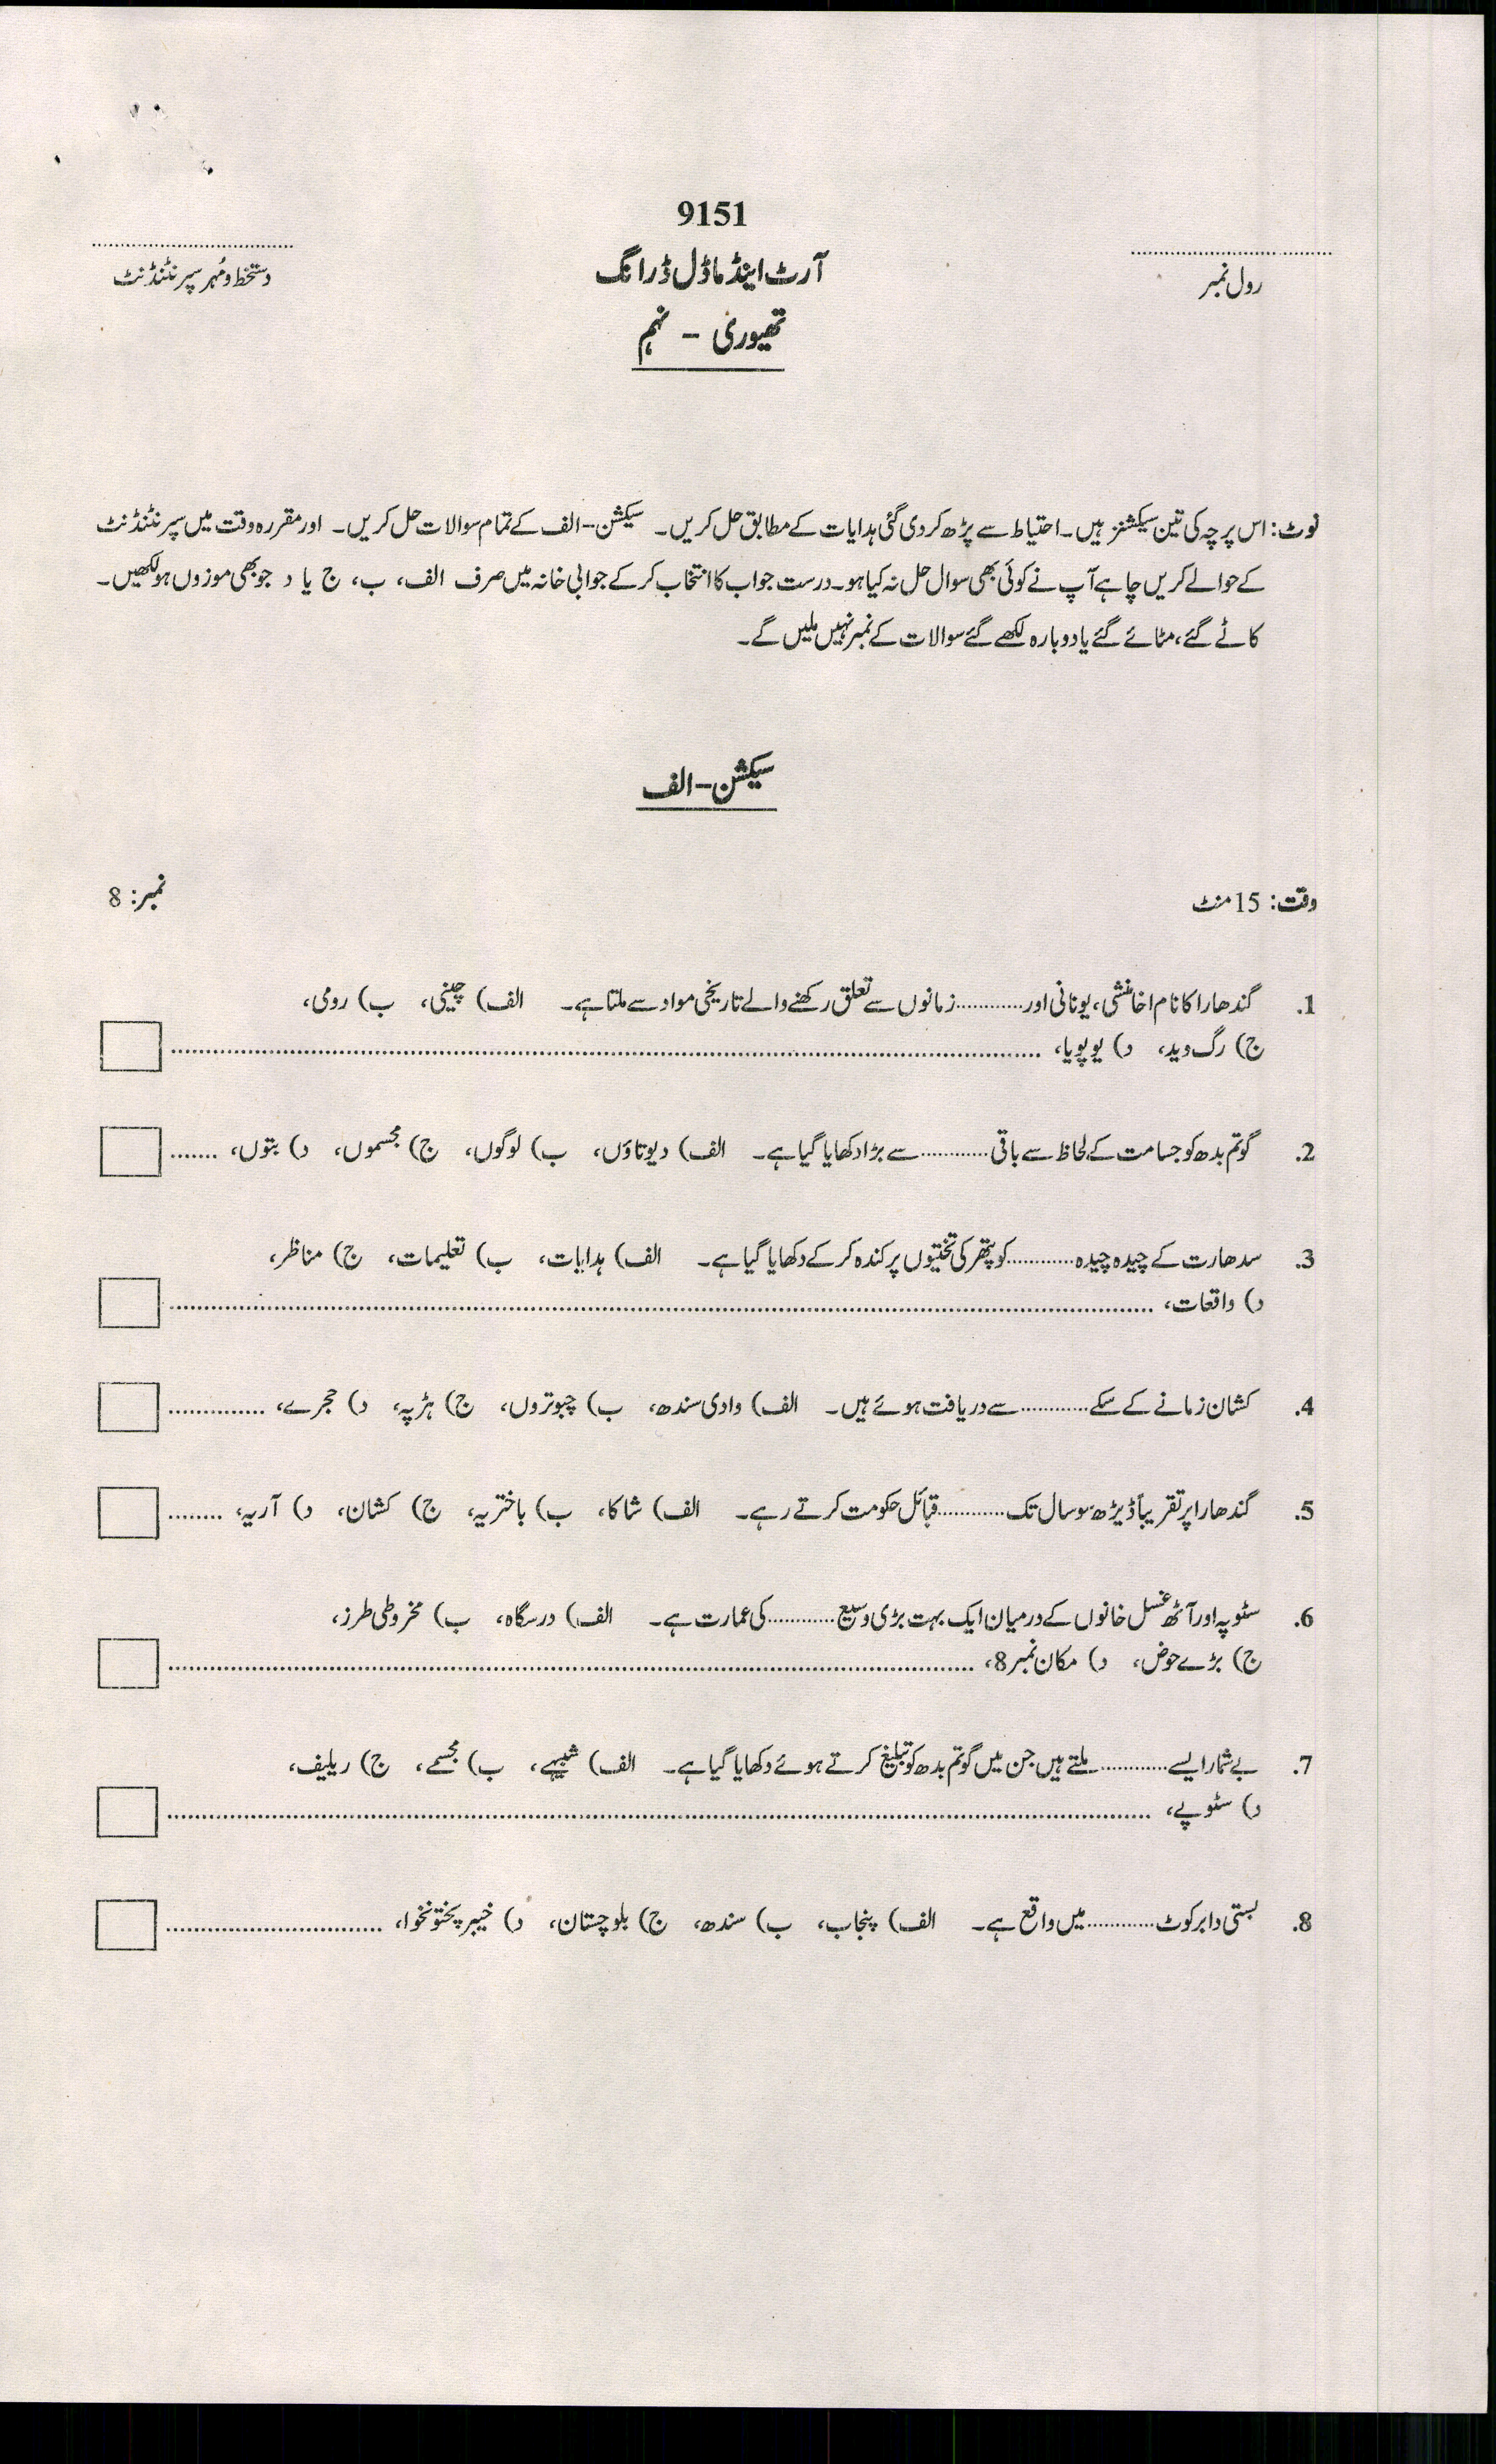 9151
رول نمبر
آرٹ اینڈ ماڈل ڈرائنگ
دستخط و مُہر سپرنٹنڈنٹ
تھیوری - نہم
نوٹ: اس پرچہ کی تین سیکشنز ہیں۔ احتیاط سے پڑھ کر دی گئی ہدایات کے مطابق حل کریں۔ سیکشن-الف کے تمام سوالات حل کریں۔ اور مقررہ وقت میں سپرنٹنڈنٹ
کے حوالے کریں چاہے آپ نے کوئی بھی سوال حل نہ کیا ہو۔ درست جواب کا انتخاب کر کے جوابی خانہ میں صرف الف، ب، ج یا د جو بھی موزوں ہو لکھیں۔
کاٹے گئے، مٹائے گئے یا دوبارہ لکھے گئے سوالات کے نمبر نہیں ملیں گے۔
سیکشن-الف
وقت: 15 منٹ نمبر: 8
1. گندھارا کا نام اخامنشی، یونانی اور............زمانوں سے تعلق رکھنے والے تاریخی مواد سے ملتا ہے۔ الف) چینی، ب) رومی،
ج) رگ وید، د) یوپویا،
2. گوتم بدھ کو جسامت کے لحاظ سے باقی............سے بڑا دکھایا گیا ہے۔ الف) دیوتاؤں، ب) لوگوں، ج) مجسموں، د) بتوں،
3. سدھارت کے چیدہ چیدہ............کو پتھر کی تختیوں پر کندہ کر کے دکھایا گیا ہے۔ الف) ہدایات، ب) تعلیمات، ج) مناظر،
د) واقعات،
4. کشان زمانے کے سکے............سے دریافت ہوئے ہیں۔ الف) وادی سندھ، ب) چبوتروں، ج) ہڑپہ، د) حجرے،
5. گندھارا پر تقریباً ڈیڑھ سو سال تک............قبائل حکومت کرتے رہے۔ الف) شاکا، ب) باختریہ، ج) کشان، د) آریہ،
6. سٹوپہ اور آٹھ غسل خانوں کے درمیان ایک بہت بڑی وسیع............کی عمارت ہے۔ الف) درسگاہ، ب) مخروطی طرز،
ج) بڑے حوض، د) مکان نمبر 8،
7. بے شمار ایسے............ملتے ہیں جن میں گوتم بدھ کو تبلیغ کرتے ہوئے دکھایا گیا ہے۔ الف) شبیہے، ب) مجسمے، ج) ریلیف،
د) سٹوپے،
8. بستی دابر کوٹ............میں واقع ہے۔ الف) پنجاب، ب) سندھ، ج) بلوچستان، د) خیبر پختونخوا،